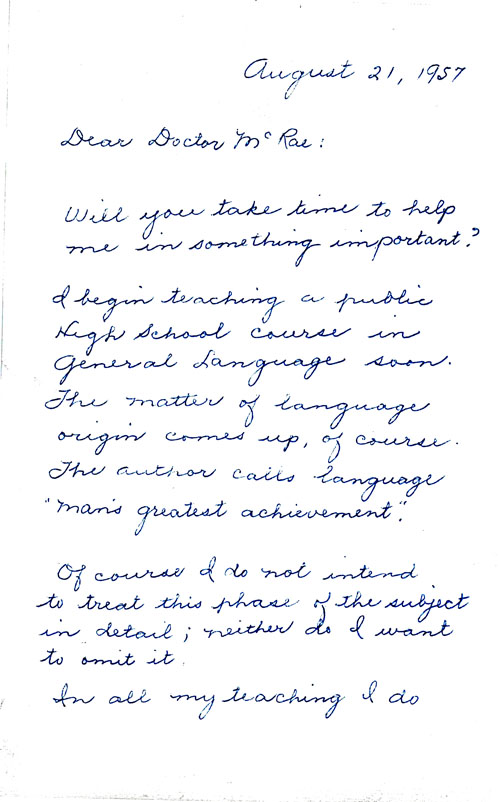 August 21, 1957
Dear Doctor McRae:
Will you take time to help
me in something important?
I begin teaching a public
High School course in
General Language soon.
The matter of language
origin comes up, of course.
The author calls language
"man's greatest achievement".
Of course I do not intend
to treat this phase of the subject
in detail; neither do I want
to omit it.
In all my teaching I do